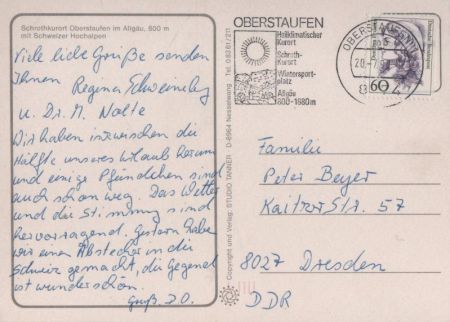 Schrothkurort Oberstaufen im Allgäu, 800 m
mit Schweizer Hochalpen
Viele liebe Grüße senden
Ihnen
Regina Schweinsberg
u. Dr. M. Nolte
Wir haben inzwischen die
Hälfte unseres Urlaub herum
und einige Pfündchen sind
auch schon weg. Das Wetter
und die Stimmung sind
hervorragend. Gestern habe
wir einen Abstecher in die
Schweiz gemacht, die Gegend
ist wunderschön.
Gruß. D.O.
Copyright und Verlag: STUDIO TANNER D-8964 Nesselwang · Tel. 08361/211
OBERSTAUFEN
Heilklimatischer
Kurort
Schroth-
Kurort
Wintersport-
platz
Allgäu
800-1680m
OBERSTAUFEN
Deutsche Bundespost
60
Familie
Peter Beyer
Kaitzer Str. 57
8027 Dresden
DDR